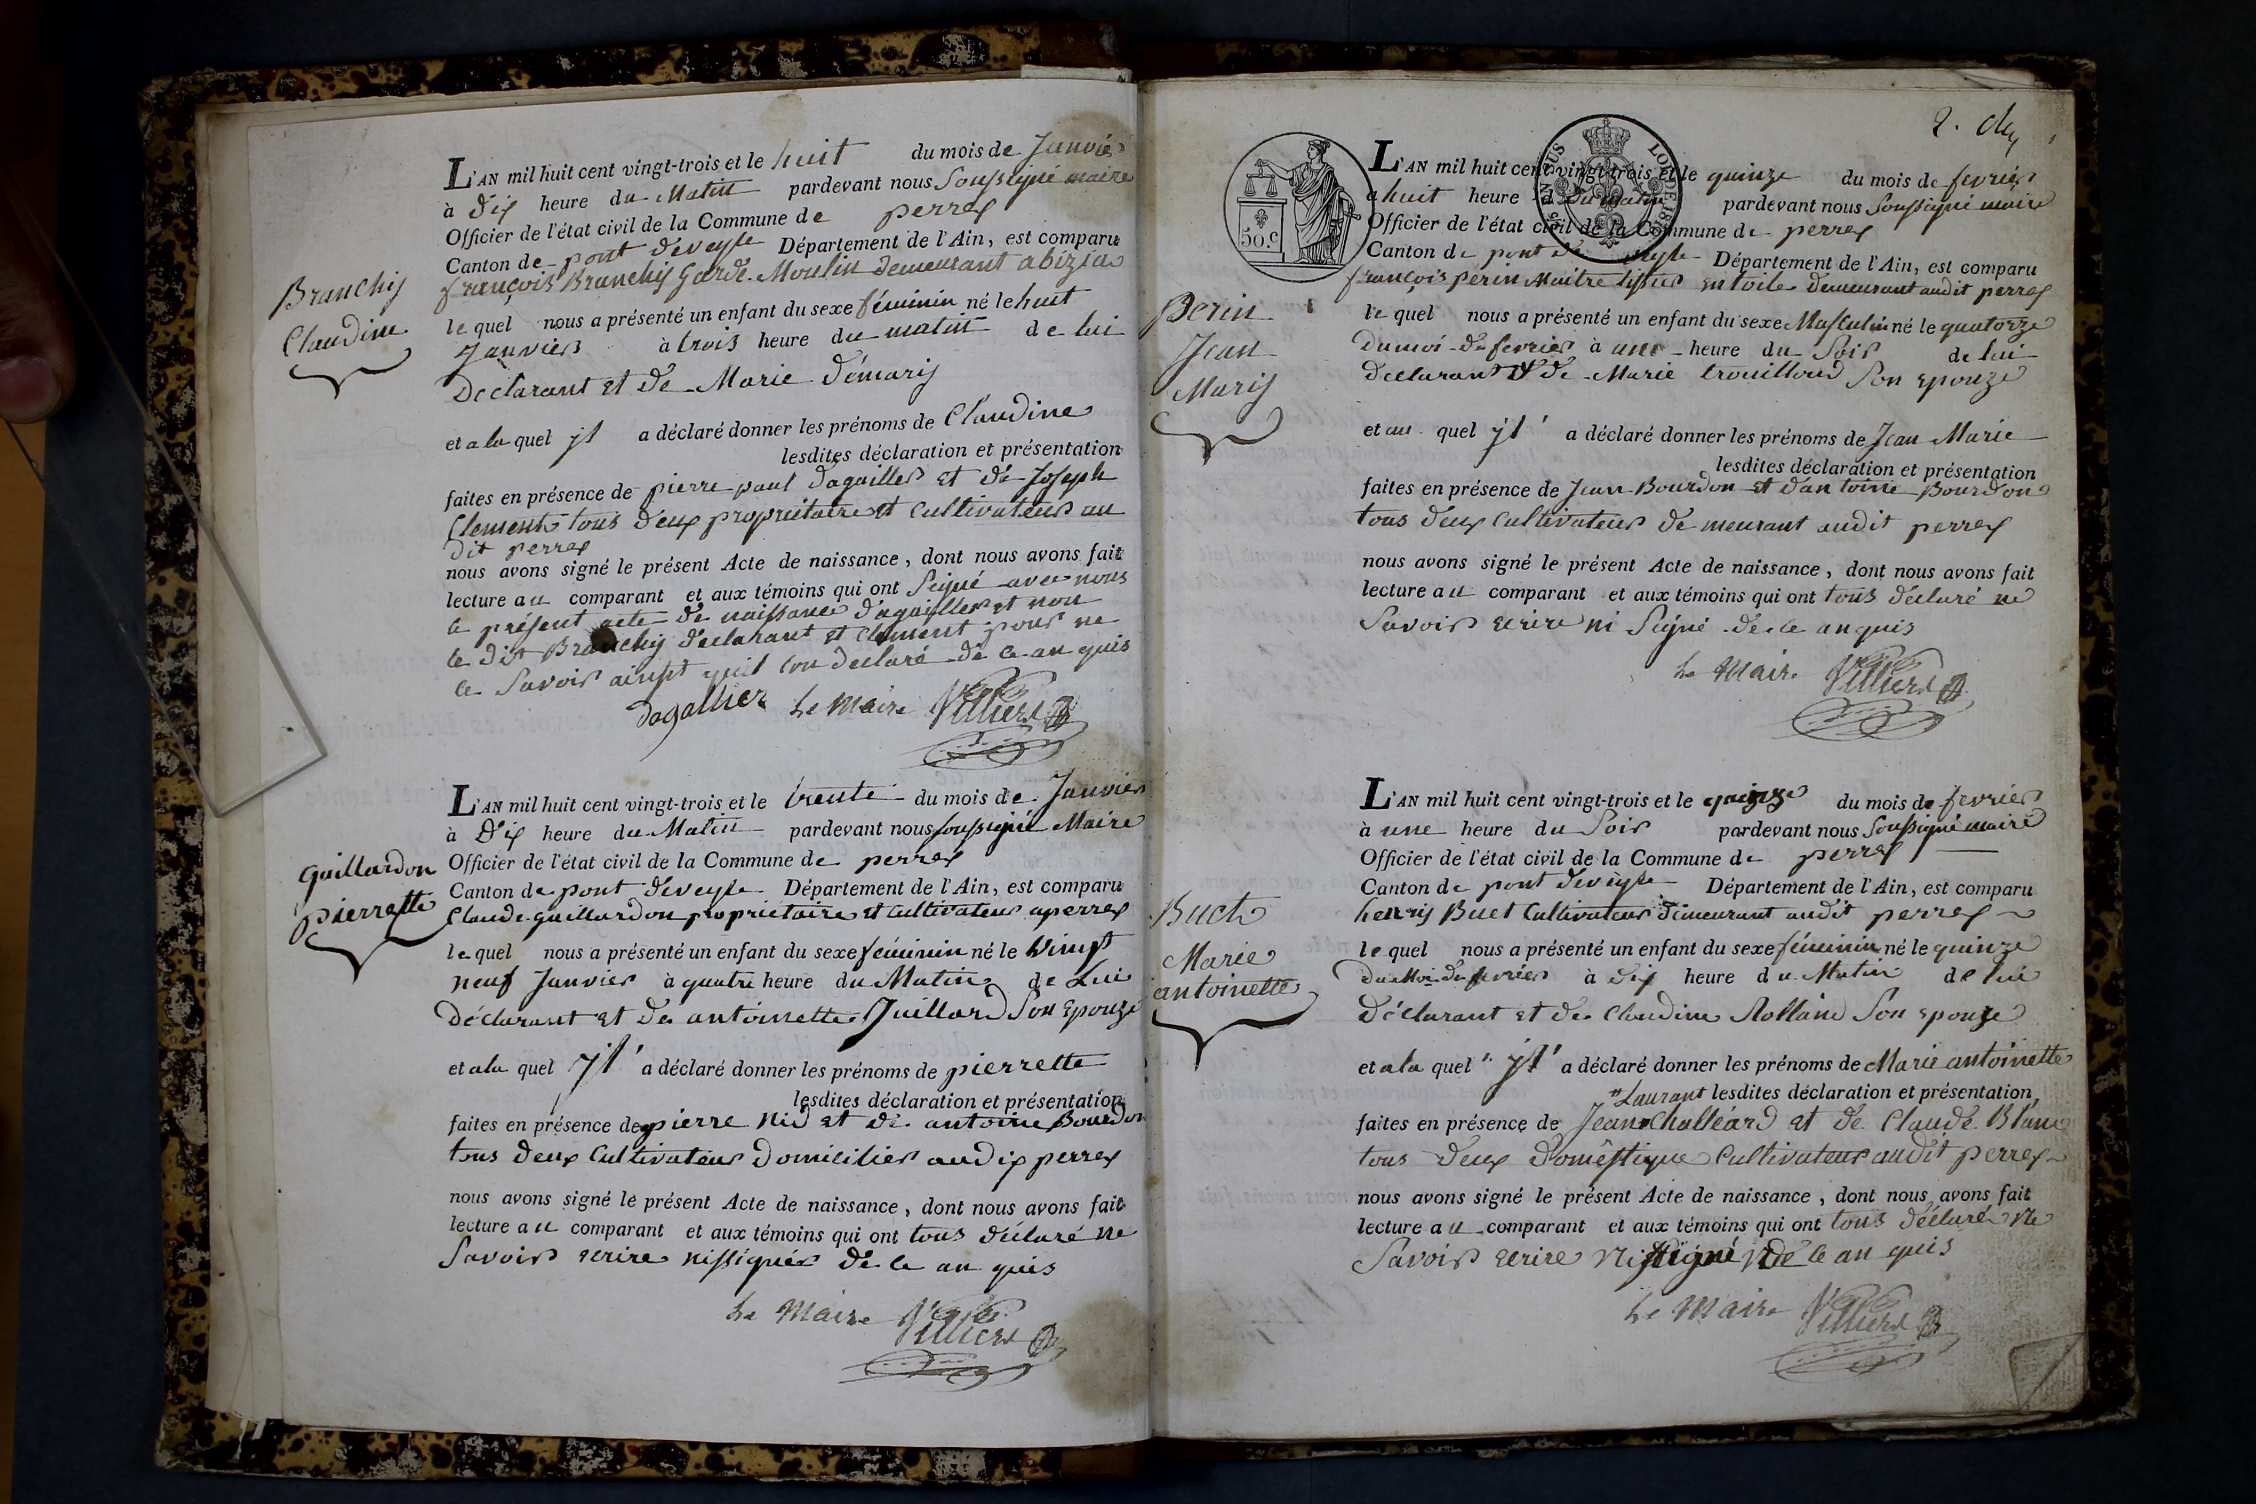 Branchy
Claudine
L'AN mil huit cent vingt-trois et le huit du mois de Janvier
à dix heure du Matin pardevant nous Soussigné maire
Officier de l'état civil de la Commune de perrex
Canton de pont deveyle Département de l'Ain, est comparu
françois Branchy Garde-Moulin demeurant a bizia
lequel nous a présenté un enfant du sexe féminin né le huit
Janvier à trois heure du matin de lui
Declarant et de Marie démary
et a la quel yl a déclaré donner les prénoms de Claudine
lesdites déclaration et présentation
faites en présence de pierre paul dagallier et de Joseph
Clement tous deux propriétaire et Cultivateur au
dit perrex
nous avons signé le présent Acte de naissance, dont nous avons fait
lecture au comparant et aux témoins qui ont Signé avec nous
le présent acte de naissance dagallier et non
le dit Branchy déclarant et Clement pour ne
le Savoir ainsy quil lon declaré de ce an quis
Dagallier Le Maire Villiers
guillardon
pierrette
L'AN mil huit cent vingt-trois et le trente du mois de Janvier
à Dix heure du Matin pardevant nous soussigné Maire
Officier de l'état civil de la Commune de perrex
Canton de pont deveyle Département de l'Ain, est comparu
Claude guillardon propriétaire et Cultivateur aperrex
lequel nous a présenté un enfant du sexe féminin né le Vingt
neuf Janvier à quatre heure du Matin de Lui
Déclarant et de antoinette Juillard Son Epouze
et a la quel yl a déclaré donner les prénoms de pierrette
lesdites déclaration et présentation
faites en présence de pierre Nid et de antoine Bourdon
tous deux Cultivateur Domicilier audix perrex
nous avons signé le présent Acte de naissance, dont nous avons fait
lecture au comparant et aux témoins qui ont tous déclaré ne
Savoir ecrire nissignér de ce an quis
Le Maire Villiers
2.
50.c
LOI DE 18
Perin
Jean
Mary
L'AN mil huit cent vingt-trois et le quinze du mois de fevrier
a huit heure du Matin pardevant nous Soussigné maire
Officier de l'état civil de la Commune de perrex
Canton de pont de veyle Département de l'Ain, est comparu
françois perin Maitre tissier en toile demeurant audit perrex
lequel nous a présenté un enfant du sexe Masculin né le quatorze
du moi de fevrier à une heure du Soir de lui
declarant et de Marie trouilloud Son epouze
et au quel yl a déclaré donner les prénoms de Jean Marie
lesdites déclaration et présentation
faites en présence de Jean Bourdon et dantoine Bourdon
tous deux Cultivateur demeurant audit perrex
nous avons signé le présent Acte de naissance, dont nous avons fait
lecture au comparant et aux témoins qui ont tous déclaré ne
Savoir ecrire ni Signé de ce an quis
Le Maire Villiers
Buet
Marie
antoinette
L'AN mil huit cent vingt-trois et le quinze du mois de fevrier
à une heure du Soir pardevant nous Soussigné maire
Officier de l'état civil de la Commune de perrex
Canton de pont deveyle Département de l'Ain, est comparu
henry Buet Cultivateur demeurant audit perrex
lequel nous a présenté un enfant du sexe féminin né le quinze
du Moi de fevrier à dix heure du Matin de lui
Déclarant et de Claudine Rolland Son epouze
et a la quel yl a déclaré donner les prénoms de Marie antoinette
Laurant lesdites déclaration et présentation
faites en présence de Jean Challéard et de Claude Blanc
tous deux domestique Cultivateur audit perrex
nous avons signé le présent Acte de naissance, dont nous avons fait
lecture au comparant et aux témoins qui ont tous déclaré ne
Savoir ecrire ni signé de ce an quis
Le Maire Villiers